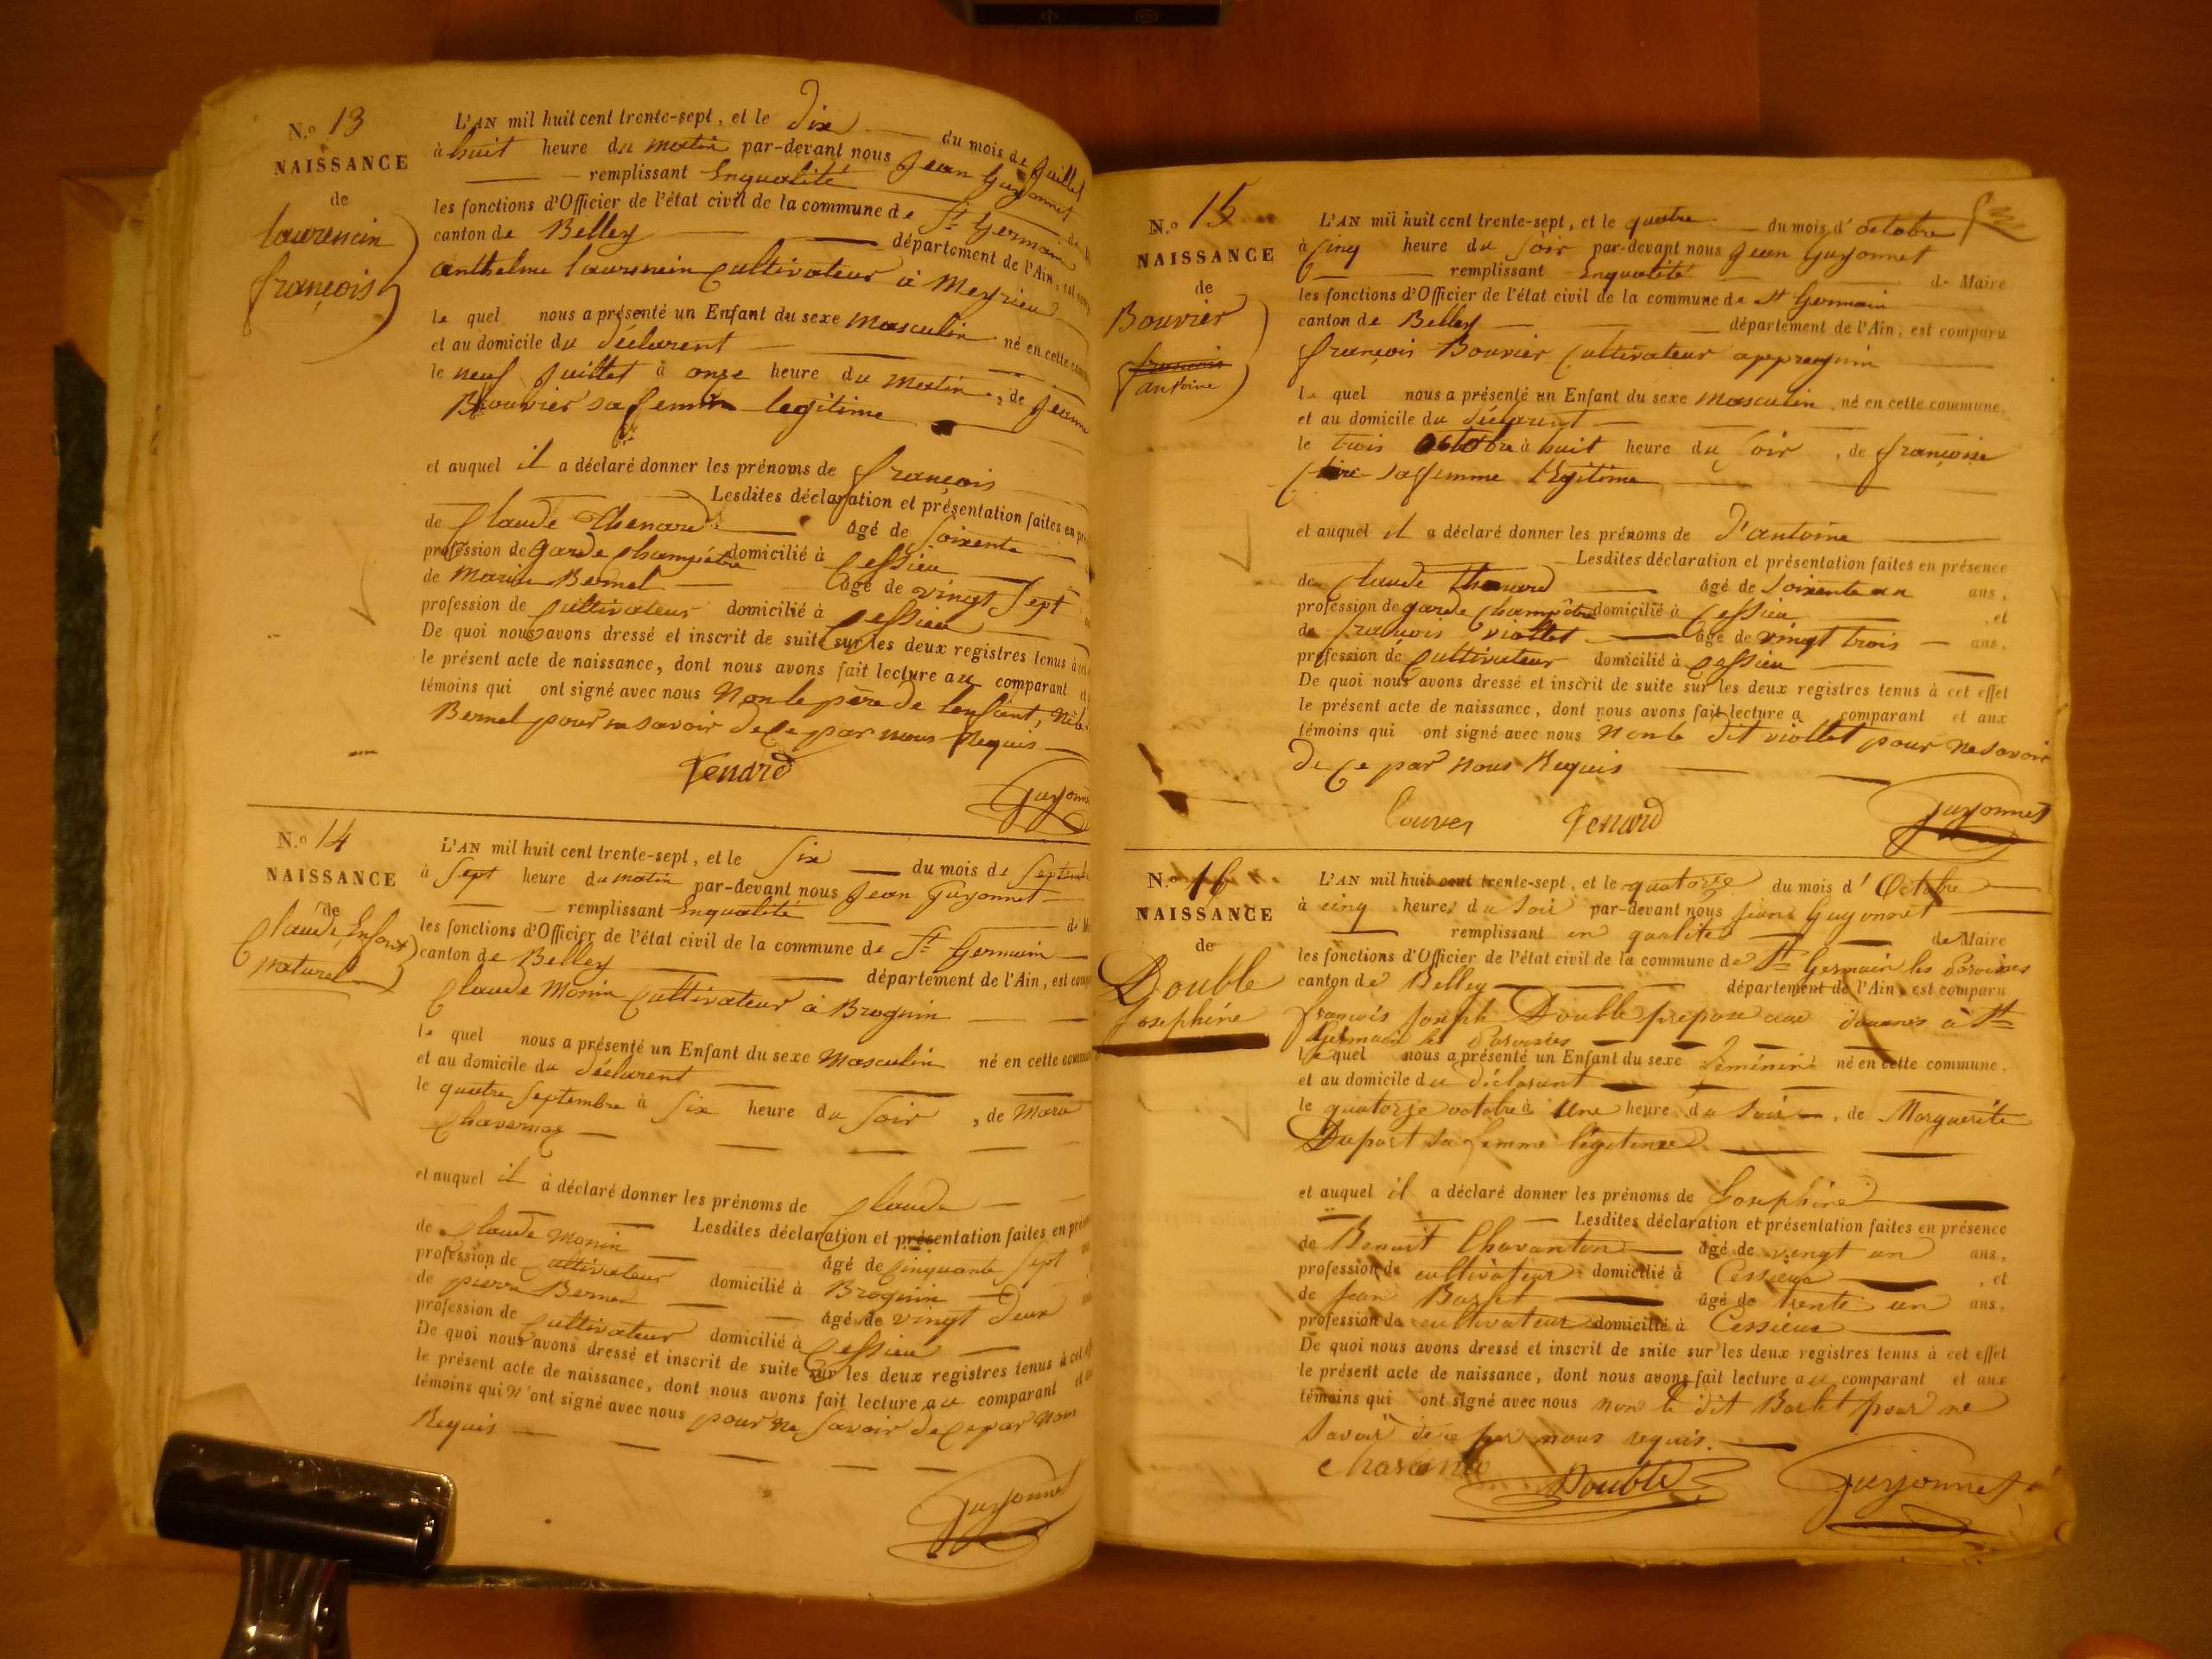 N.º 13
NAISSANCE
de
laurencin
françois
L'AN mil huit cent trente-sept, et le dix du mois de Juillet
à huit heure du matin par-devant nous Jean Guyonnet
remplissant Enqualité
les fonctions d'Officier de l'état civil de la commune de St Germain
canton de Belley département de l'Ain, est
anthelme laurencin Cultivateur à Meyrieu
le quel nous a présenté un Enfant du sexe masculin né en cette
et au domicile du déclarent
le neuf Juillet à onze heure du matin, de Jeanne
Bouvier sa femme legitime
et auquel il a déclaré donner les prénoms de françois
Lesdites déclaration et présentation faites en
de Claude Thenard âgé de Soixente
profession de garde Champétre domicilié à Cessieu
de Marin Bernel âgé de vingt Sept
profession de Cultivateur domicilié à Cessieu
De quoi nous avons dressé et inscrit de suite sur les deux registres tenus à
le présent acte de naissance, dont nous avons fait lecture au comparant
témoins qui ont signé avec nous Non le père de lenfant, Ni le
Bernel pour ne savoir de Ce par nous Requis
Tenard
Guyonnet
N.º 14
NAISSANCE
de
Claude Enfant
naturel
L'AN mil huit cent trente-sept, et le Six du mois de Septem
à Sept heure du matin par-devant nous Jean Guyonnet
remplissant Enqualité
les fonctions d'Officier de l'état civil de la commune de St Germain
canton de Belley département de l'Ain, est
Claude Monin Cultivateur à Brognin
le quel nous a présenté un Enfant du sexe Masculin né en cette
et au domicile du déclarent
le quatre Septembre à Six heure du Soir, de
et auquel il à déclaré donner les prénoms de Claude
Lesdites déclaration et présentation faites en
de Claude Monin âgé de Cinquante Sept
profession de Cultivateur domicilié à Brognin
de pierre âgé de vingt deux
profession de Cultivateur domicilié à Cessieu
De quoi nous avons dressé et inscrit de suite sur les deux registres tenus à cet
le présent acte de naissance, dont nous avons fait lecture au comparant
témoins qui n'ont signé avec nous pour ne Savoir de Ce par nous
Requis
Guyonnet
N.º 15
NAISSANCE
de
Bouvier
françois
antoine
L'AN mil huit cent trente-sept, et le quatre du mois d'octobre
à Cinq heure du Soir par-devant nous Jean Guyonnet
remplissant Enqualité de Maire
les fonctions d'Officier de l'état civil de la commune de St Germain
canton de Belley département de l'Ain, est comparu
françois Bouvier Cultivateur
le quel nous a présenté un Enfant du sexe Masculin né en cette commune,
et au domicile du déclarent
le trois Octobre à huit heure du Soir, de françoise
sa femme légitime
et auquel il a déclaré donner les prénoms de D'antoine
Lesdites déclaration et présentation faites en présence
de Claude Thenard âgé de Soixente un ans,
profession de garde Champêtre domicilié à Cessieu, et
de françois viollet âgé de vingt trois ans,
profession de Cultivateur domicilié à Cessieu
De quoi nous avons dressé et inscrit de suite sur les deux registres tenus à cet effet
le présent acte de naissance, dont nous avons fait lecture a comparant et aux
témoins qui ont signé avec nous Non le dit viollet pour ne Savoir
de Ce par nous Requis
Tenard
Guyonnet
N.º 16
NAISSANCE
de
Double
Josephine
L'AN mil huit cent trente-sept, et le quatorze du mois d'Octobre
à cinq heures du Soir par-devant nous Jean Guyonnet
remplissant en qualité de Maire
les fonctions d'Officier de l'état civil de la commune de St Germain les Paroisses
canton de Belley département de l'Ain, est comparu
françois Joseph Double préposé aux douanes à St
Germain les Paroisses
le quel nous a présenté un Enfant du sexe féminin né en cette commune,
et au domicile du déclarant
le quatorze octobre à Une heure du Soir, de Marguerite
Duport sa femme légitime
et auquel il a déclaré donner les prénoms de Josephine
Lesdites déclaration et présentation faites en présence
de Benoit Chavanton âgé de vingt un ans,
profession de cultivateur domicilié à Cessieux, et
de Jean âgé de trente un ans,
profession de cultivateur domicilié à Cessieux
De quoi nous avons dressé et inscrit de suite sur les deux registres tenus à cet effet
le présent acte de naissance, dont nous avons fait lecture au comparant et aux
témoins qui ont signé avec nous non le dit pour ne
savoir de ce par nous requis.
Double
Guyonnet